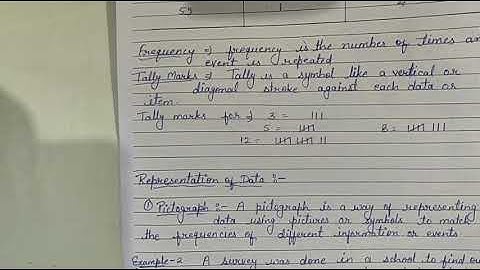 53 1
Frequency ⇒ frequency is the number of times an
event is repeated
Tally Marks ⇒ Tally is a symbol like a vertical or
diagonal stroke against each data or
item.
Tally marks for ⇒ 3 = |||
5 = 卌 8 = 卌 |||
12 = 卌 卌 ||
Representation of Data :-
① Pictograph :- A pictograph is a way of representing
data using pictures or symbols to match
the frequencies of different information or events.
Example-2 A survey was done in a school to find ou